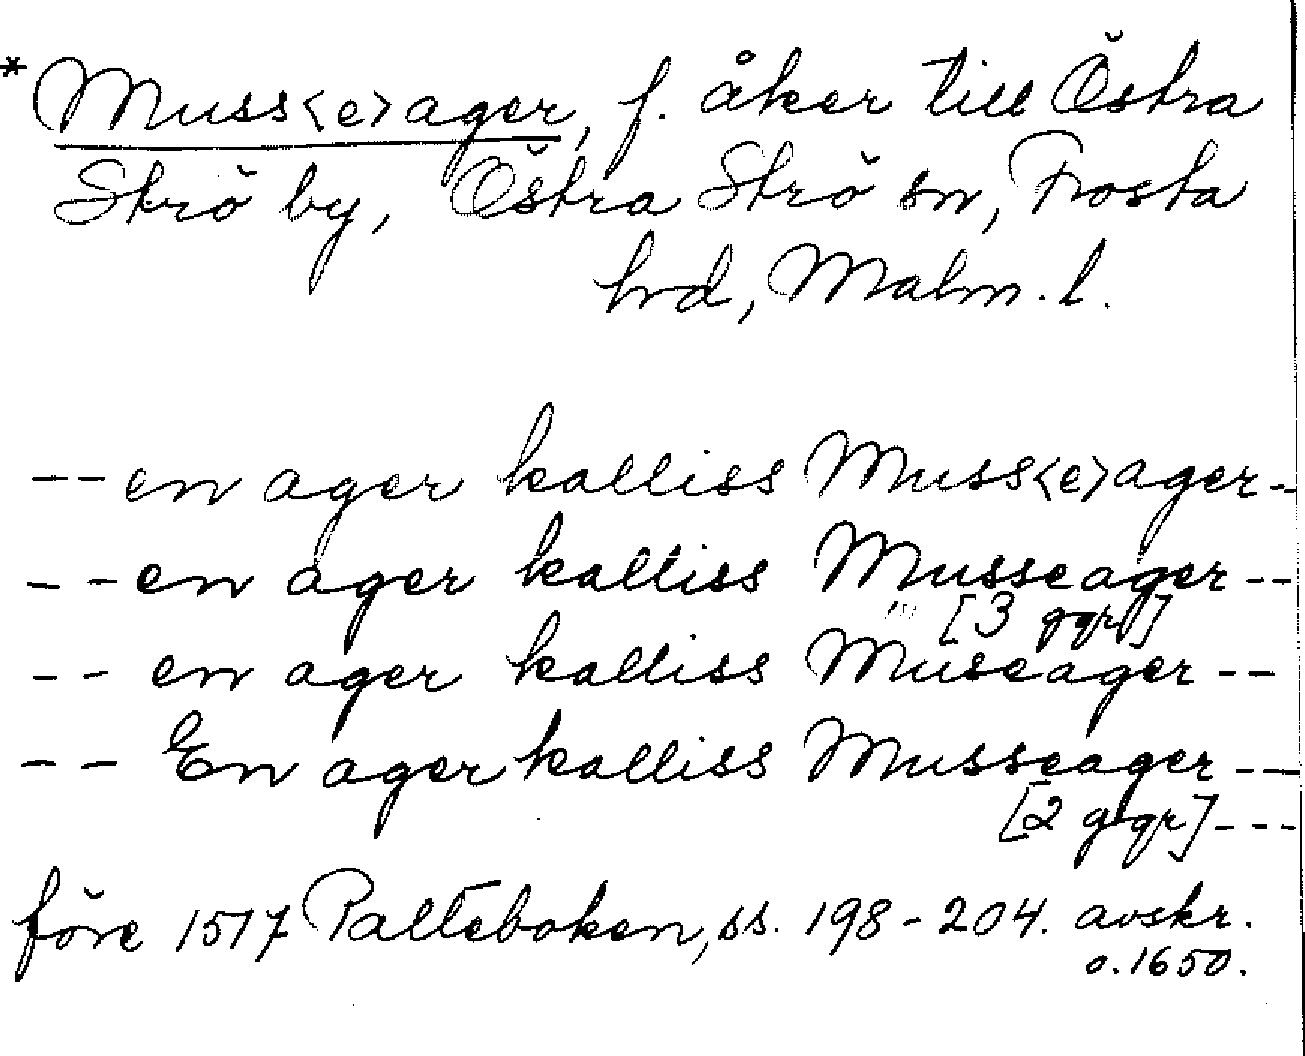 *Muss<e>ager, f. åker till Östra
Strö by, Östra Strö sn, Frosta
hrd, Malm. l.
-- en ager kalliss Muss<e>ager -
-- en ager kalliss Musseager --
[3 ggr]
-- en ager kalliss Museager --
-- En ager kalliss Musseager --
[2 ggr] ---
före 1517 Palteboken, ss. 198-204. avskr.
o. 1650.